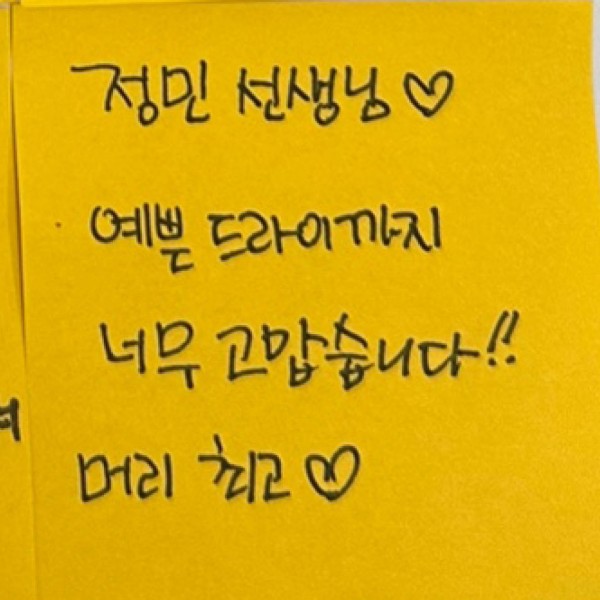 정민 선생님♡
예쁜 드라이까지
너무 고맙습니다!!
머리 최고♡